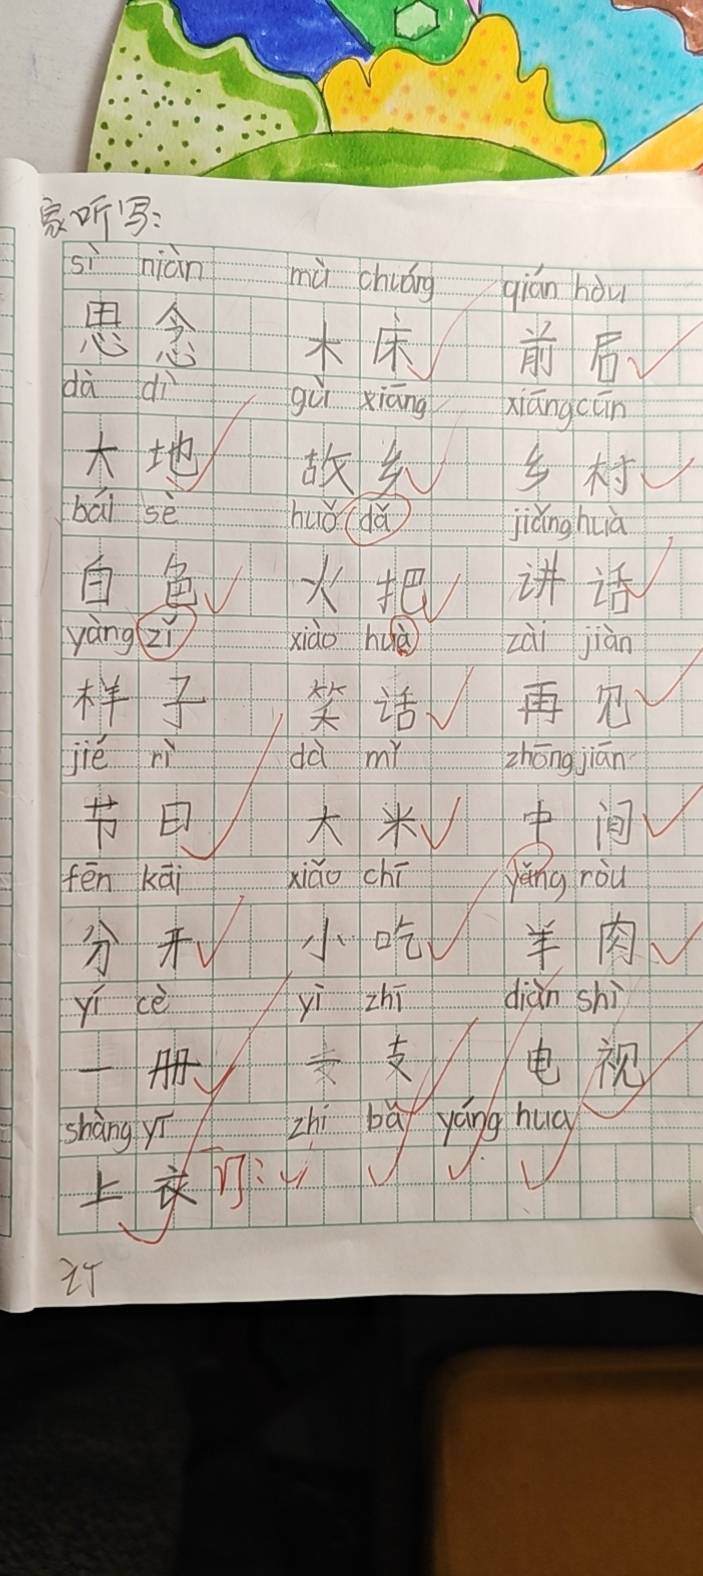 家听写:
sì niàn mù chuáng qián hòu
思念 木床 前后
dà dì gù xiāng xiāng cūn
大地 故乡 乡村
bái sè huǒ dǎ jiǎng huà
白色 火把 讲话
yàng zǐ xiào huà zài jiàn
样子 笑话 再见
jié rì dà mǐ zhōng jiān
节日 大米 中间
fēn kāi xiǎo chī yǎng ròu
分开 小吃 羊肉
yí cè yì zhī diàn shì
一册 一支 电视
shàng yī zhǐ bǎ yáng hua
上衣 订:
订